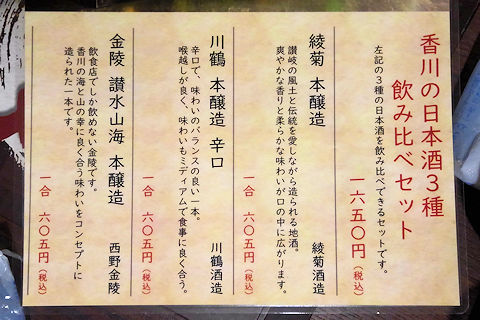 香川の日本酒3種
飲み比べセット
左記の3種の日本酒を飲み比べできるセットです。
一六五〇円(税込)
綾菊 本醸造 綾菊酒造
讃岐の風土と伝統を愛しながら造られる地酒。
爽やかな香りと柔らかな味わいが口の中に広がります。
一合 六〇五円(税込)
川鶴 本醸造 辛口 川鶴酒造
辛口で、味わいのバランスの良い一本。
喉越しが良く、味わいもミディアムで食事に良く合う。
一合 六〇五円(税込)
金陵 讃水山海 本醸造 西野金陵
飲食店でしか飲めない金陵です。
香川の海と山の幸に良く合う味わいをコンセプトに
造られた一本です。
一合 六〇五円(税込)